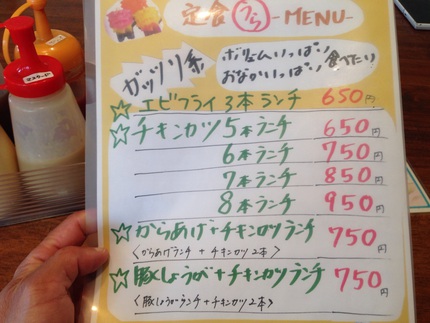 定食 うら -MENU-
ガッツリ系
ボリュームいっぱい
おなかいっぱい 食べたい
☆エビフライ3本ランチ 650円
☆チキンカツ5本ランチ 650円
6本ランチ 750円
7本ランチ 850円
8本ランチ 950円
☆からあげ+チキンカツランチ 750円
<からあげランチ + チキンカツ2本>
☆豚しょうが+チキンカツランチ 750円
<豚しょうがランチ+チキンカツ2本>